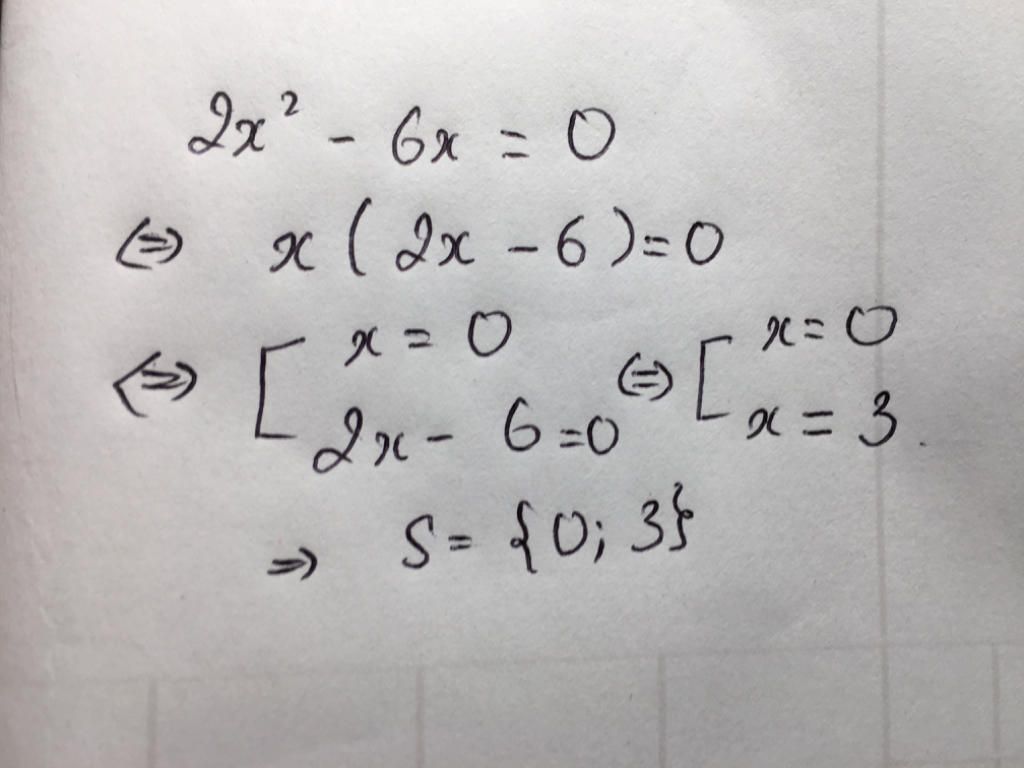 2x² - 6x = 0
⇔ x ( 2x - 6 ) = 0
⇔ [ x = 0 ⇔ [ x = 0
2x - 6 = 0 x = 3.
⇒ S = {0; 3}